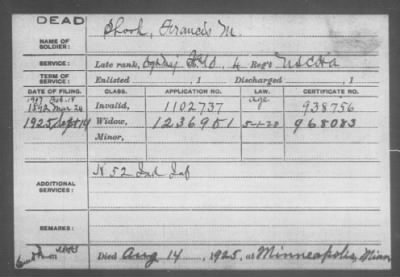 DEAD
NAME OF SOLDIER: Shook, Francis M.
SERVICE: Late rank, Cpl & Maj Co. D, 4 Reg't U S C H A
TERM OF SERVICE: Enlisted , 1 Discharged , 1
DATE OF FILING. CLASS. APPLICATION NO. LAW. CERTIFICATE NO.
1892 Mar 24 Invalid, 1102737 age 938756
1925, Sept 14 Widow, 1236901 5-1-20 968083
Minor,
ADDITIONAL SERVICES: K 52 Ind Inf
REMARKS:
Died Aug 14, 1925, at Minneapolis, Minn